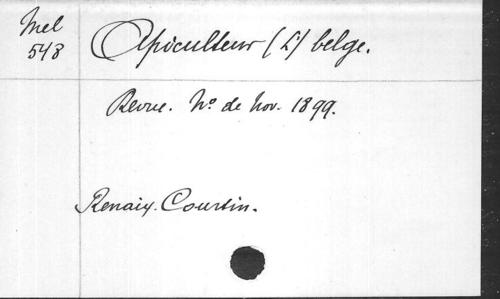 Mel
548
Apiculteur (L') belge.
Revue. No de Nov. 1899.
Renaix. Courtin.